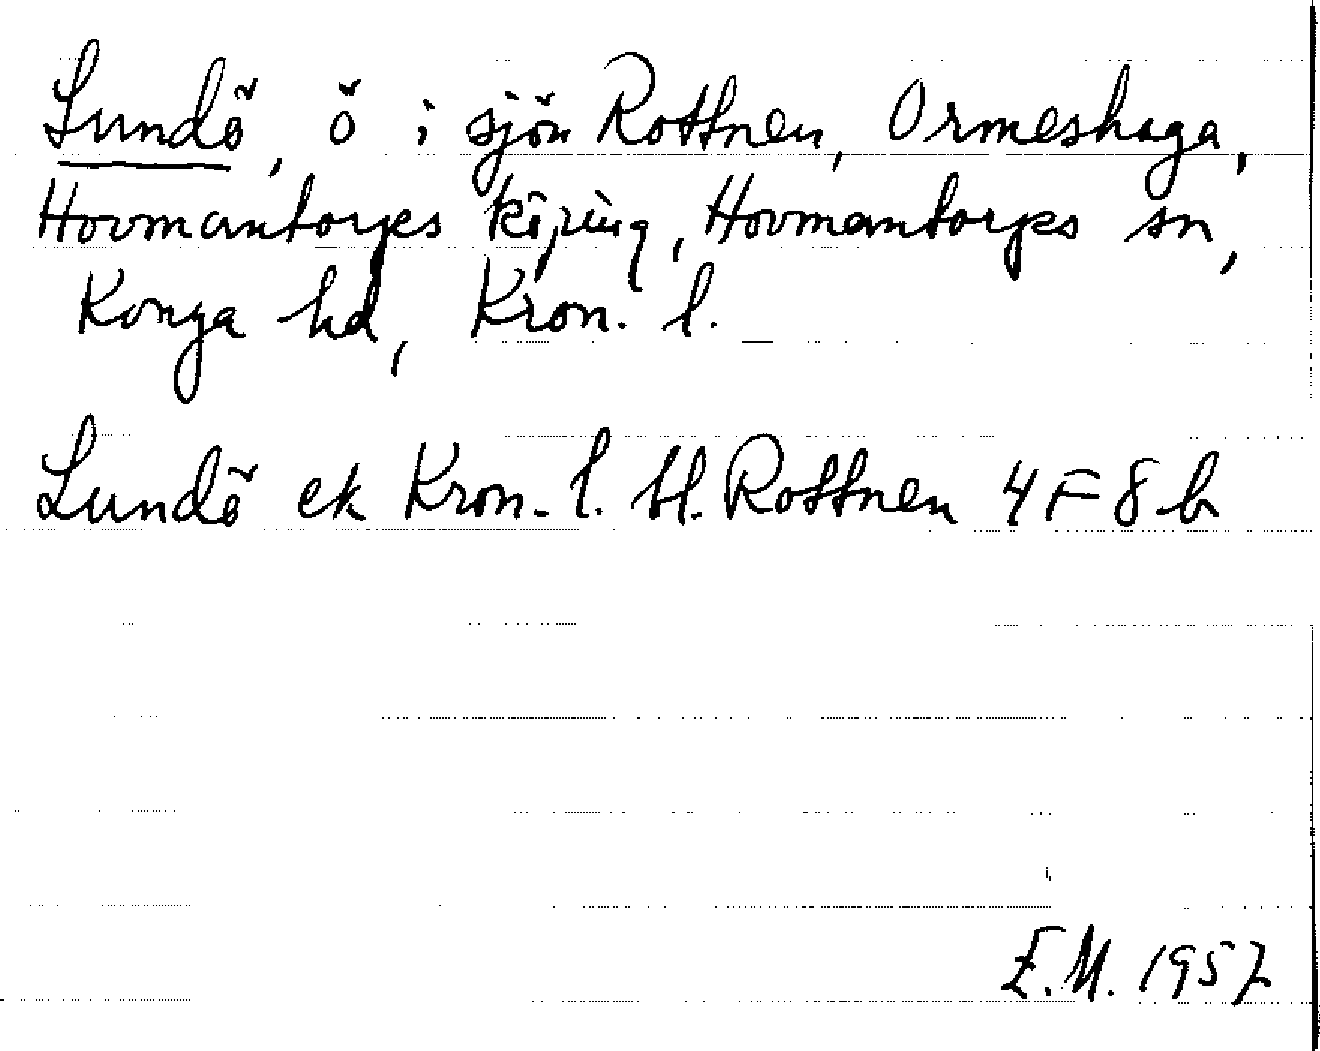 Lundö, ö i sjön Rottnen, Ormeshaga,
Hovmantorps köping, Hovmantorps sn,
Konga hd, Kron. l.
Lundö ek Kron. l. bl. Rottnen 4 F 8 b
E.M. 1957